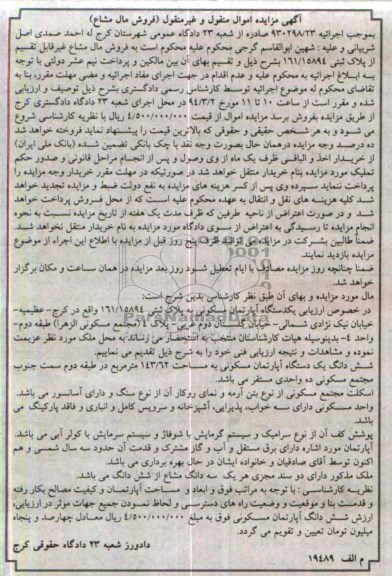 آگهی مزایده اموال منقول و غیرمنقول (فروش مال مشاع)
بموجب اجرائیه ۹۳۰۲۹۸/۲۳ صادره از شعبه ۲۳ دادگاه عمومی شهرستان کرج له احمد صمدی اصل
شربیانی و علیه : شهین ابوالقاسم گرجی محکوم علیه محکوم است به فروش مال مشاع غیرقابل تقسیم
از پلاک ثبتی ۱۶۱/۱۵۸۹۴ بشرح ذیل و تقسیم بهای آن بین مالکین و پرداخت نیم عشر دولتی با توجه
به ابلاغ اجرائیه به محکوم علیه و عدم اقدام در جهت اجرای مفاد اجرائیه و مضی مهلت مقرر، بنا به
تقاضای محکوم له موضوع اجرائیه توسط کارشناس رسمی دادگستری بشرح ذیل توصیف و ارزیابی
شده و مقرر است از ساعت ۱۰ تا ۱۱ مورخ ۹۴/۳/۲ در محل اجرای شعبه ۲۳ دادگاه دادگستری کرج
از طریق مزایده بفروش برسد مزایده اموال از قیمت ۴/۵۰۰/۰۰۰/۰۰۰ ریال با نظریه کارشناسی شروع
می شود و به هر شخص حقیقی و حقوقی که بالاترین قیمت را پیشنهاد نماید فروخته خواهد شد
ده درصد وجه مزایده درهمان حال بصورت وجه نقد یا چک بانکی تضمین شده (بانک ملی ایران)
از خریدار اخذ و الباقی ظرف یک ماه از وی وصول و پس از انجام مراحل قانونی و صدور حکم
تملیک مورد مزایده بنام خریدار منتقل خواهد شد در صورتیکه در مهلت مقرر خریدار وجه مزایده را
پرداخت ننماید سپرده وی پس از کسر هزینه های مزایده به نفع دولت ضبط و مزایده تجدید خواهد
شد کلیه هزینه های نقل و انتقال به عهده محکوم علیه است که از محل فروش پرداخت خواهد
شد و در صورت اعتراض از ناحیه طرفین که ظرف مدت یک هفته از تاریخ مزایده نسبت به نحوه
انجام مزایده تا رسیدگی به اعتراض از سوی دادگاه مورد مزایده به نام خریدار منتقل نخواهد شد.
ضمناً طالبین بشرکت در مزایده می توانند ظرف پنج روز قبل از مزایده با اطلاع این اجراء از موضوع
مزایده بازدید نمایند.
ضمنا چنانچه روز مزایده مصادف با ایام تعطیل شود روز بعد مزایده در همان ساعت و مکان برگزار
خواهد شد.
مال مورد مزایده و بهای آن طبق نظر کارشناس بدین شرح است:
در خصوص ارزیابی یکدستگاه آپارتمان مسکونی به پلاک ثبتی ۱۶۱/۱۵۸۹۴ واقع در کرج- عظیمیه-
خیابان نیک نژادی شمالی- خیابان گلستان دوم غربی- پلاک ۴ (مجتمع مسکونی الزهرا) طبقه دوم-
واحد ۴- بدینوسیله هیات کارشناسان منتخب به استحضار می رساند به محل ملک مورد نظر عزیمت
نموده و مشاهدات و نتیجه ارزیابی فنی خود را به شرح ذیل تقدیم می نماییم.
شش دانگ یک دستگاه آپارتمان مسکونی به مساحت ۱۴۳/۶۲ مترمربع در طبقه دوم سمت جنوب
مجتمع مسکونی ده واحدی مستقر می باشد.
اسکلت مجتمع مسکونی از نوع بتن آرمه و نمای روکار آن از نوع سنگ و دارای آسانسور می باشد.
واحد مسکونی دارای سه خواب، پذیرایی، آشپزخانه و سرویس کامل و انباری و فاقد پارکینگ می
باشد.
پوشش کف آن از نوع سرامیک و سیستم گرمایش با شوفاژ و سیستم سرمایش با کولر آبی می باشد.
آپارتمان مورد اشاره دارای برق مستقل و آب و گاز مشترک و قدمت آن حدود سه سال شمسی و هم
اکنون توسط آقای صادقیان و خانواده ایشان در حال بهره برداری می باشد.
ملک مذکور دارای دو سند مجزی هر یک سه دانگ مشاع از شش دانگ می باشد.
نظریه کارشناسی : با توجه به مراتب فوق و ابعاد و مساحت آپارتمان و کیفیت مصالح بکار رفته
و قدمت بنا و موقعیت و وضعیت راه های دسترسی و لحاظ نمودن جمیع جهات موثر در ارزیابی،
ارزش شش دانگ آپارتمان مسکونی فوق به مبلغ ۴/۵۰۰/۰۰۰/۰۰۰ ریال معادل چهارصد و پنجاه
میلیون تومان تعیین و تقویم می گردد.
دادورز شعبه ۲۳ دادگاه حقوقی کرج
م الف ۱۹۴۸۹